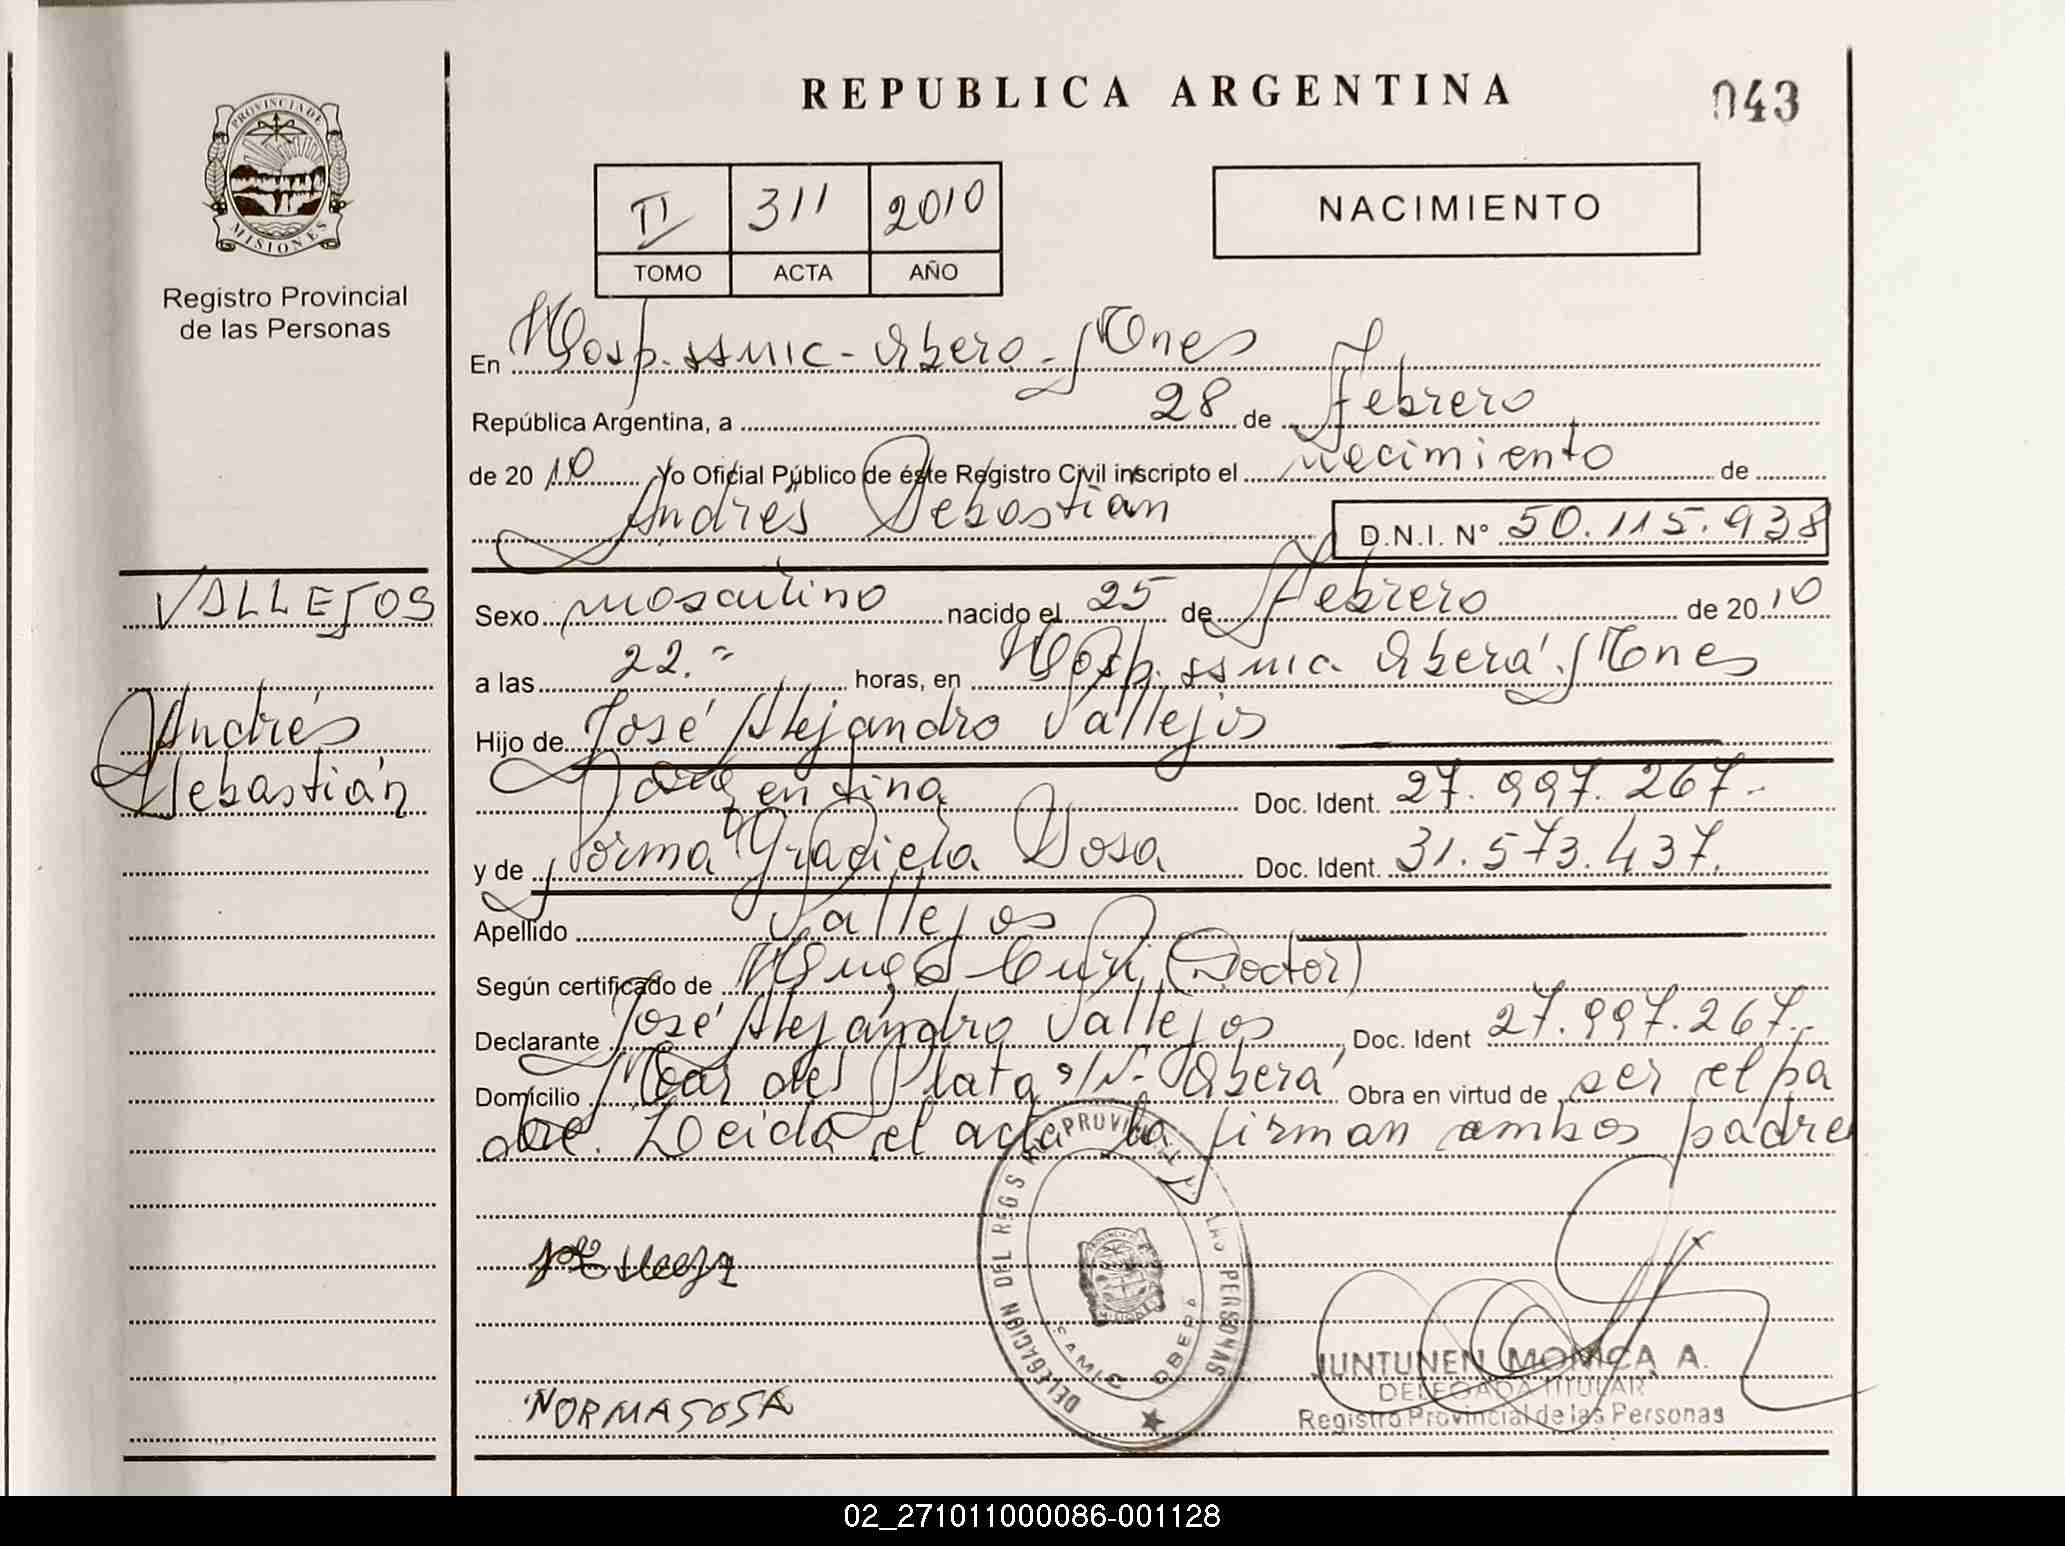 REPUBLICA ARGENTINA
043
PROVINCIA DE
MISIONES
Registro Provincial
de las Personas
II 311 2010
TOMO ACTA AÑO
NACIMIENTO
En Hosp. SAMIC - Oberá - Mnes
República Argentina, a 28 de Febrero
de 2010 Yo Oficial Público de éste Registro Civil inscripto el nacimiento de
Andrés Sebastián
D.N.I. Nº 50.115.938
VALLEJOS
Andrés
Sebastián
Sexo masculino nacido el 25 de Febrero de 2010
a las 22.- horas, en Hosp. SAMIC Oberá Mnes
Hijo de José Alejandro Vallejos
Argentina Doc. Ident. 27.997.267.-
y de Norma Graciela Sosa Doc. Ident. 31.573.437.
Apellido Vallejos
Según certificado de Hugo (Doctor)
Declarante José Alejandro Vallejos, Doc. Ident 27.997.267.-
Domicilio Mar del Plata s/Nº Oberá Obra en virtud de ser el pa
dre. Leida el acta la firman ambos padres
DELEGACION DEL REG PROVINCIAL LAS PERSONAS
SAMIC OBERA
NORMA SOSA
JUNTUNEN MONICA A.
DELEGADA TITULAR
Registro Provincial de las Personas
02_271011000086-001128